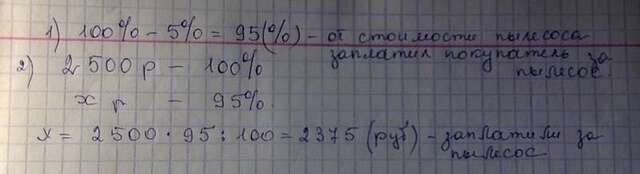 1) 100% - 5% = 95(%) - от стоимости пылесоса
заплатил покупатель за
пылесос.
2) 2 500 р - 100%
х р - 95%
х = 2500 · 95 : 100 = 2375 (руб) - заплатили за
пылесос